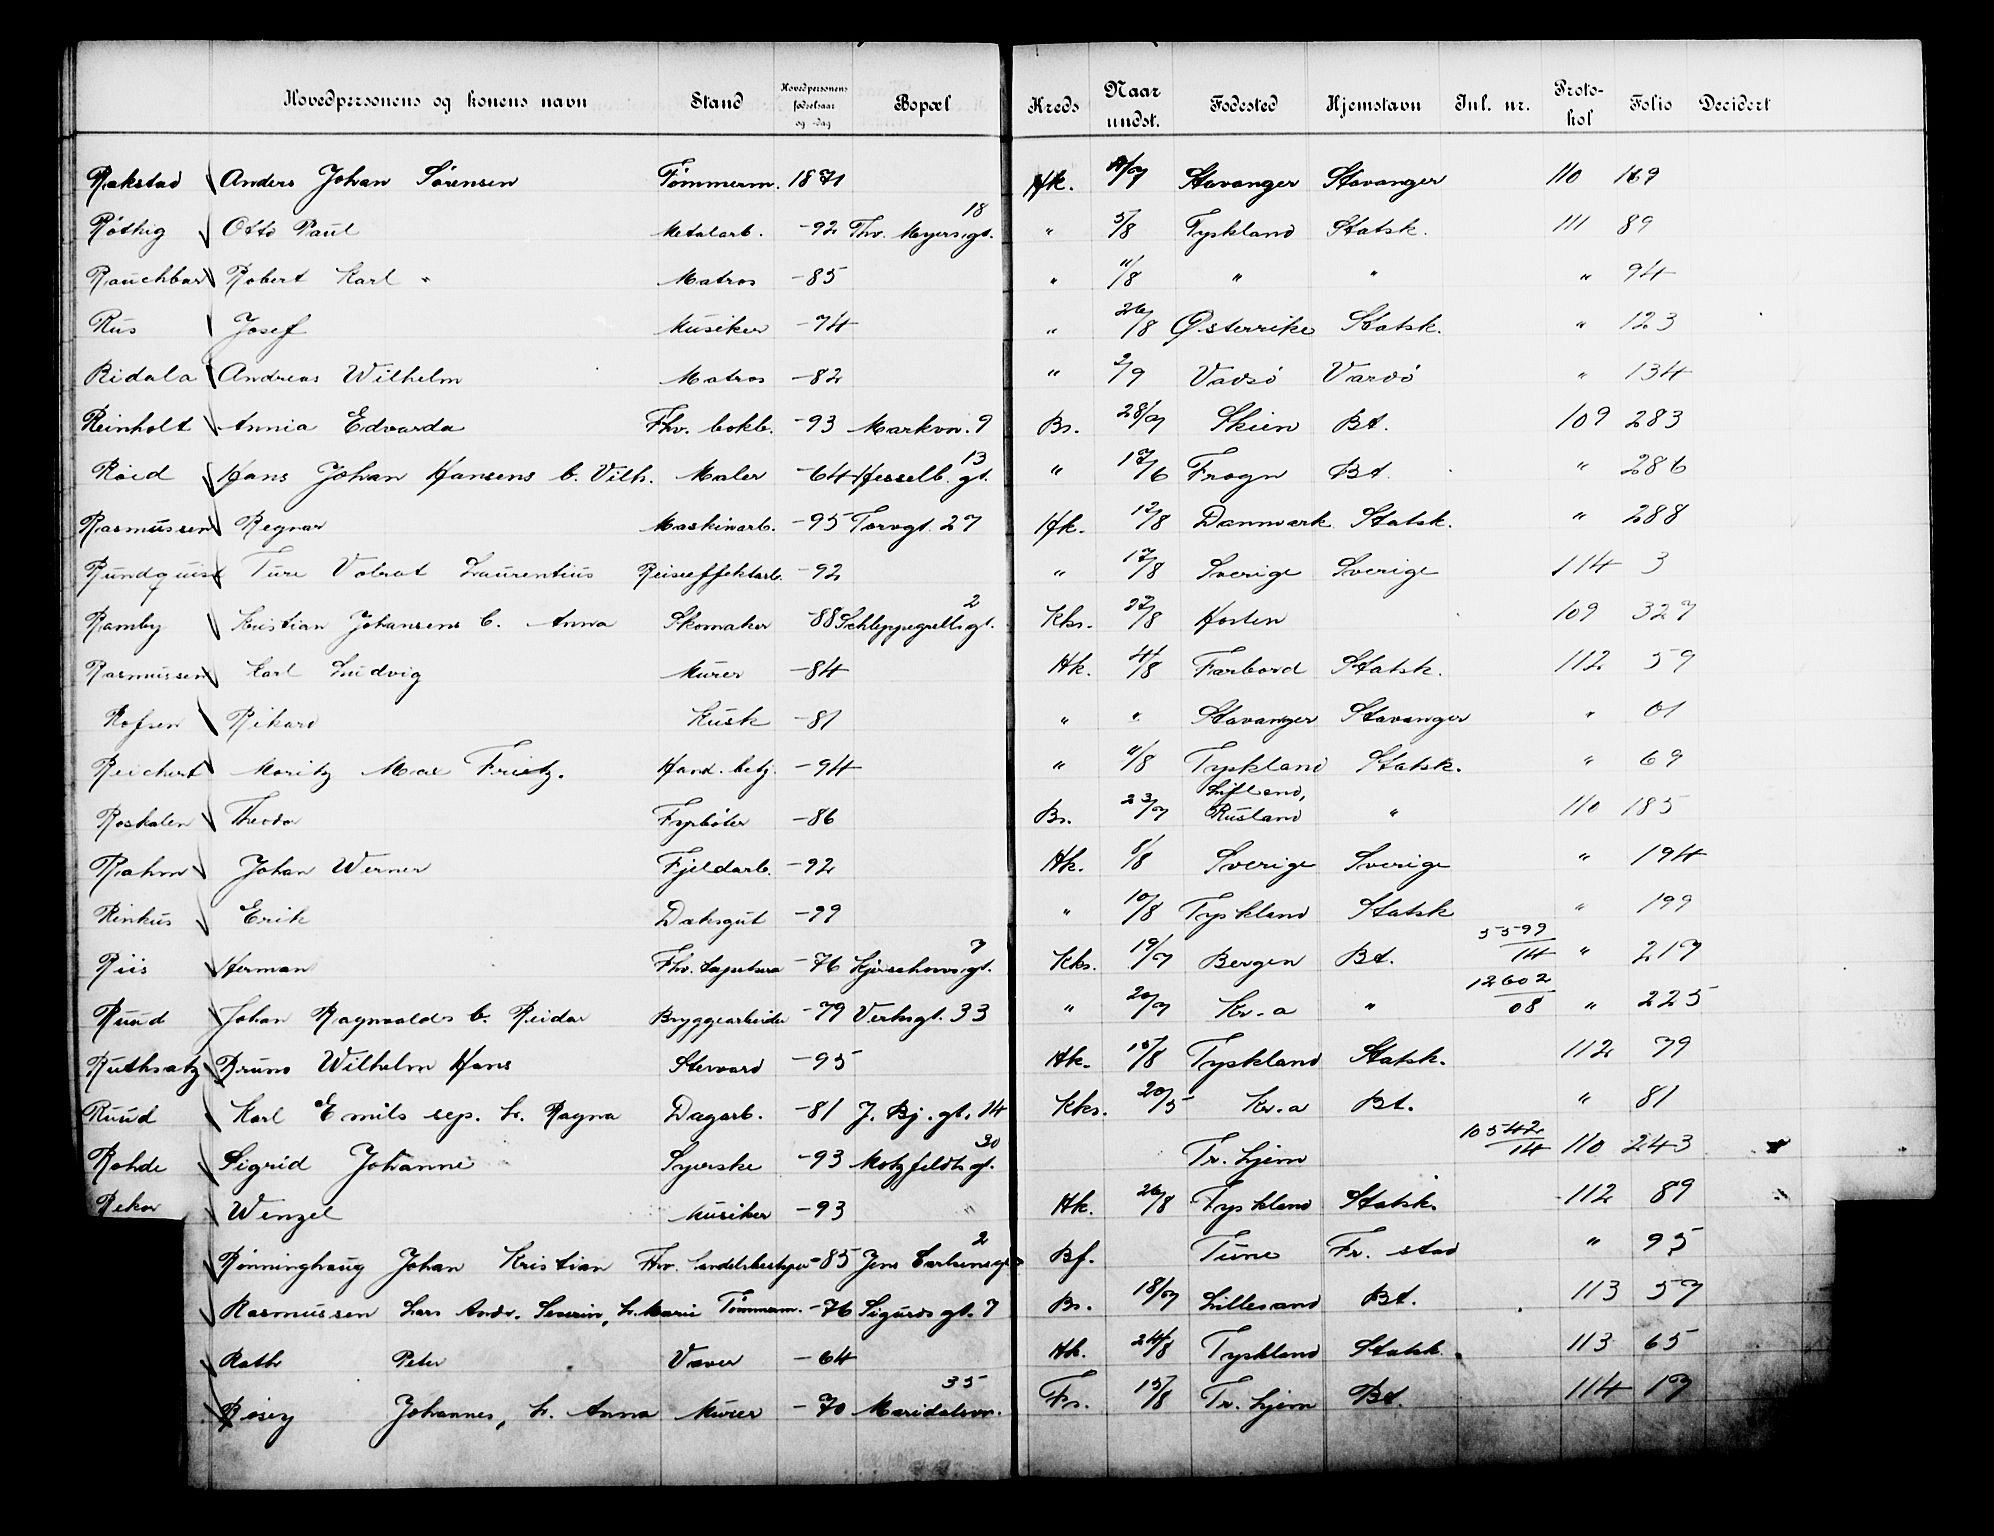 Hovedpersonens og konens navn Stand Hovedpersonens fødselsaar og -dag Bopæl Kreds Naar undst. Fødested Hjemstavn Jnl. nr. Proto-kol Folio Decidert
Rakstad Anders Johan Sørensen Tømmerm. 1871 Hk. /7 Stavanger Stavanger 110 169
Røthig Otto Paul Metalarb. -92 Thv. Meyersgt. 18 " 5/8 Tyskland Statsk. 111 89
Rauchbar Robert Karl " Matros -85 " 11/8 " " " 94
Rus Josef Musiker -74 " 26/8 Østerrike Statsk. " 123
Ridala Andreas Wilhelm Matros -82 " 2/9 Vadsø Vardø " 134
Reinholt Annia Edvarda Fhv. bokb. -93 Markvn. 9 Bs. 28/7 Skien Bt. 109 283
Roid Hans Johan Hansens b. Vilh. Maler -64 Hesselb. gt. 13 " 17/6 Frogn Bt. " 286
Rasmussen Regnar Maskinarb. -95 Torvgt. 27 Hk. 12/8 Danmark Statsk. " 288
Rundquist Ture Volrat Laurentius Reiseeffektarb. -92 " 17/8 Sverige Sverige 114 3
Ramby Kristian Johansens b. Anna Skomaker -88 Schleppegrellsgt. 2 Kks. 27/8 Horten 109 327
Rasmussen Karl Ludvig Murer -84 Hk. 4/8 Farbord Statsk. 112 59
Rofsen Rikard Kusk -81 " " Stavanger Stavanger " 61
Reichert Moritz Max Frietz. Hand. betj. -94 " 11/8 Tyskland Statsk. " 69
Roskalen Theodor Fyrbøter -86 Bs. 23/7 Lifland, Rusland " 110 185
Rahm Johan Werner Fjeldarb. -92 Hk. 8/8 Sverige Sverige " 194
Rinkus Erik Daksgut -99 " 10/8 Tyskland Statsk " 199
Riis Herman Fhv. -76 Kjerschowsgt. 7 Kks. 19/7 Bergen Bt. 5599/14 " 217
Ruud Johan Ragnvalds b. Reidar Bryggearbeider -79 Verksgt. 33 " 20/7 Kr.a " 12602/08 " 225
Ruthsatz Bruno Wilhelm Hans Steward -95 Hk. 15/8 Tyskland Statsk. 112 79
Ruud Karl Emils sep. h. Ragna Dagarb. -81 J. Bj. gt. 14 Kks. 20/5 Kr.a Bt. " 81
Rohde Sigrid Johanne Syerske -93 Motzfeldtsgt. 30 Tr.hjem 10542/14 110 243
Rekar Wenzel Musiker -93 Hk. 26/8 Tyskland Statsk. 112 89
Rønninghaug Johan Kristian Fhv. handelsbestyrer -85 Jens Carlsensgt. 2 Bf. Tune Fr. stad " 95
Rasmussen Lars Andr. Severin, h. Marie Tømmerm. -76 Sigurds gt. 7 Bs. 18/7 Lillesand Bt. 113 57
Rath Peter Væver -64 Hk. 24/8 Tyskland Statsk. 113 65
Roisey Johannes, h. Anna Murer -70 Maridalsvn. 35 Fs. 15/8 Tr. hjem Bt. 114 17